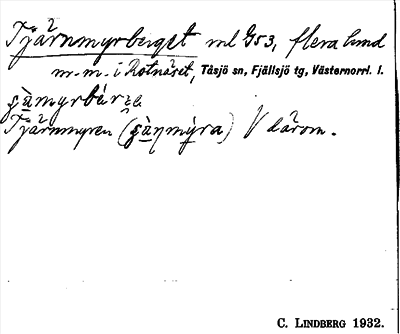 Tjärnmyrberget ml G53, flera lund
m.m. i Rotnäset, Tåsjö sn, Fjällsjö tg, Västernorrl. l.
Tjärnmyren V därom.
C. LINDBERG 1932.